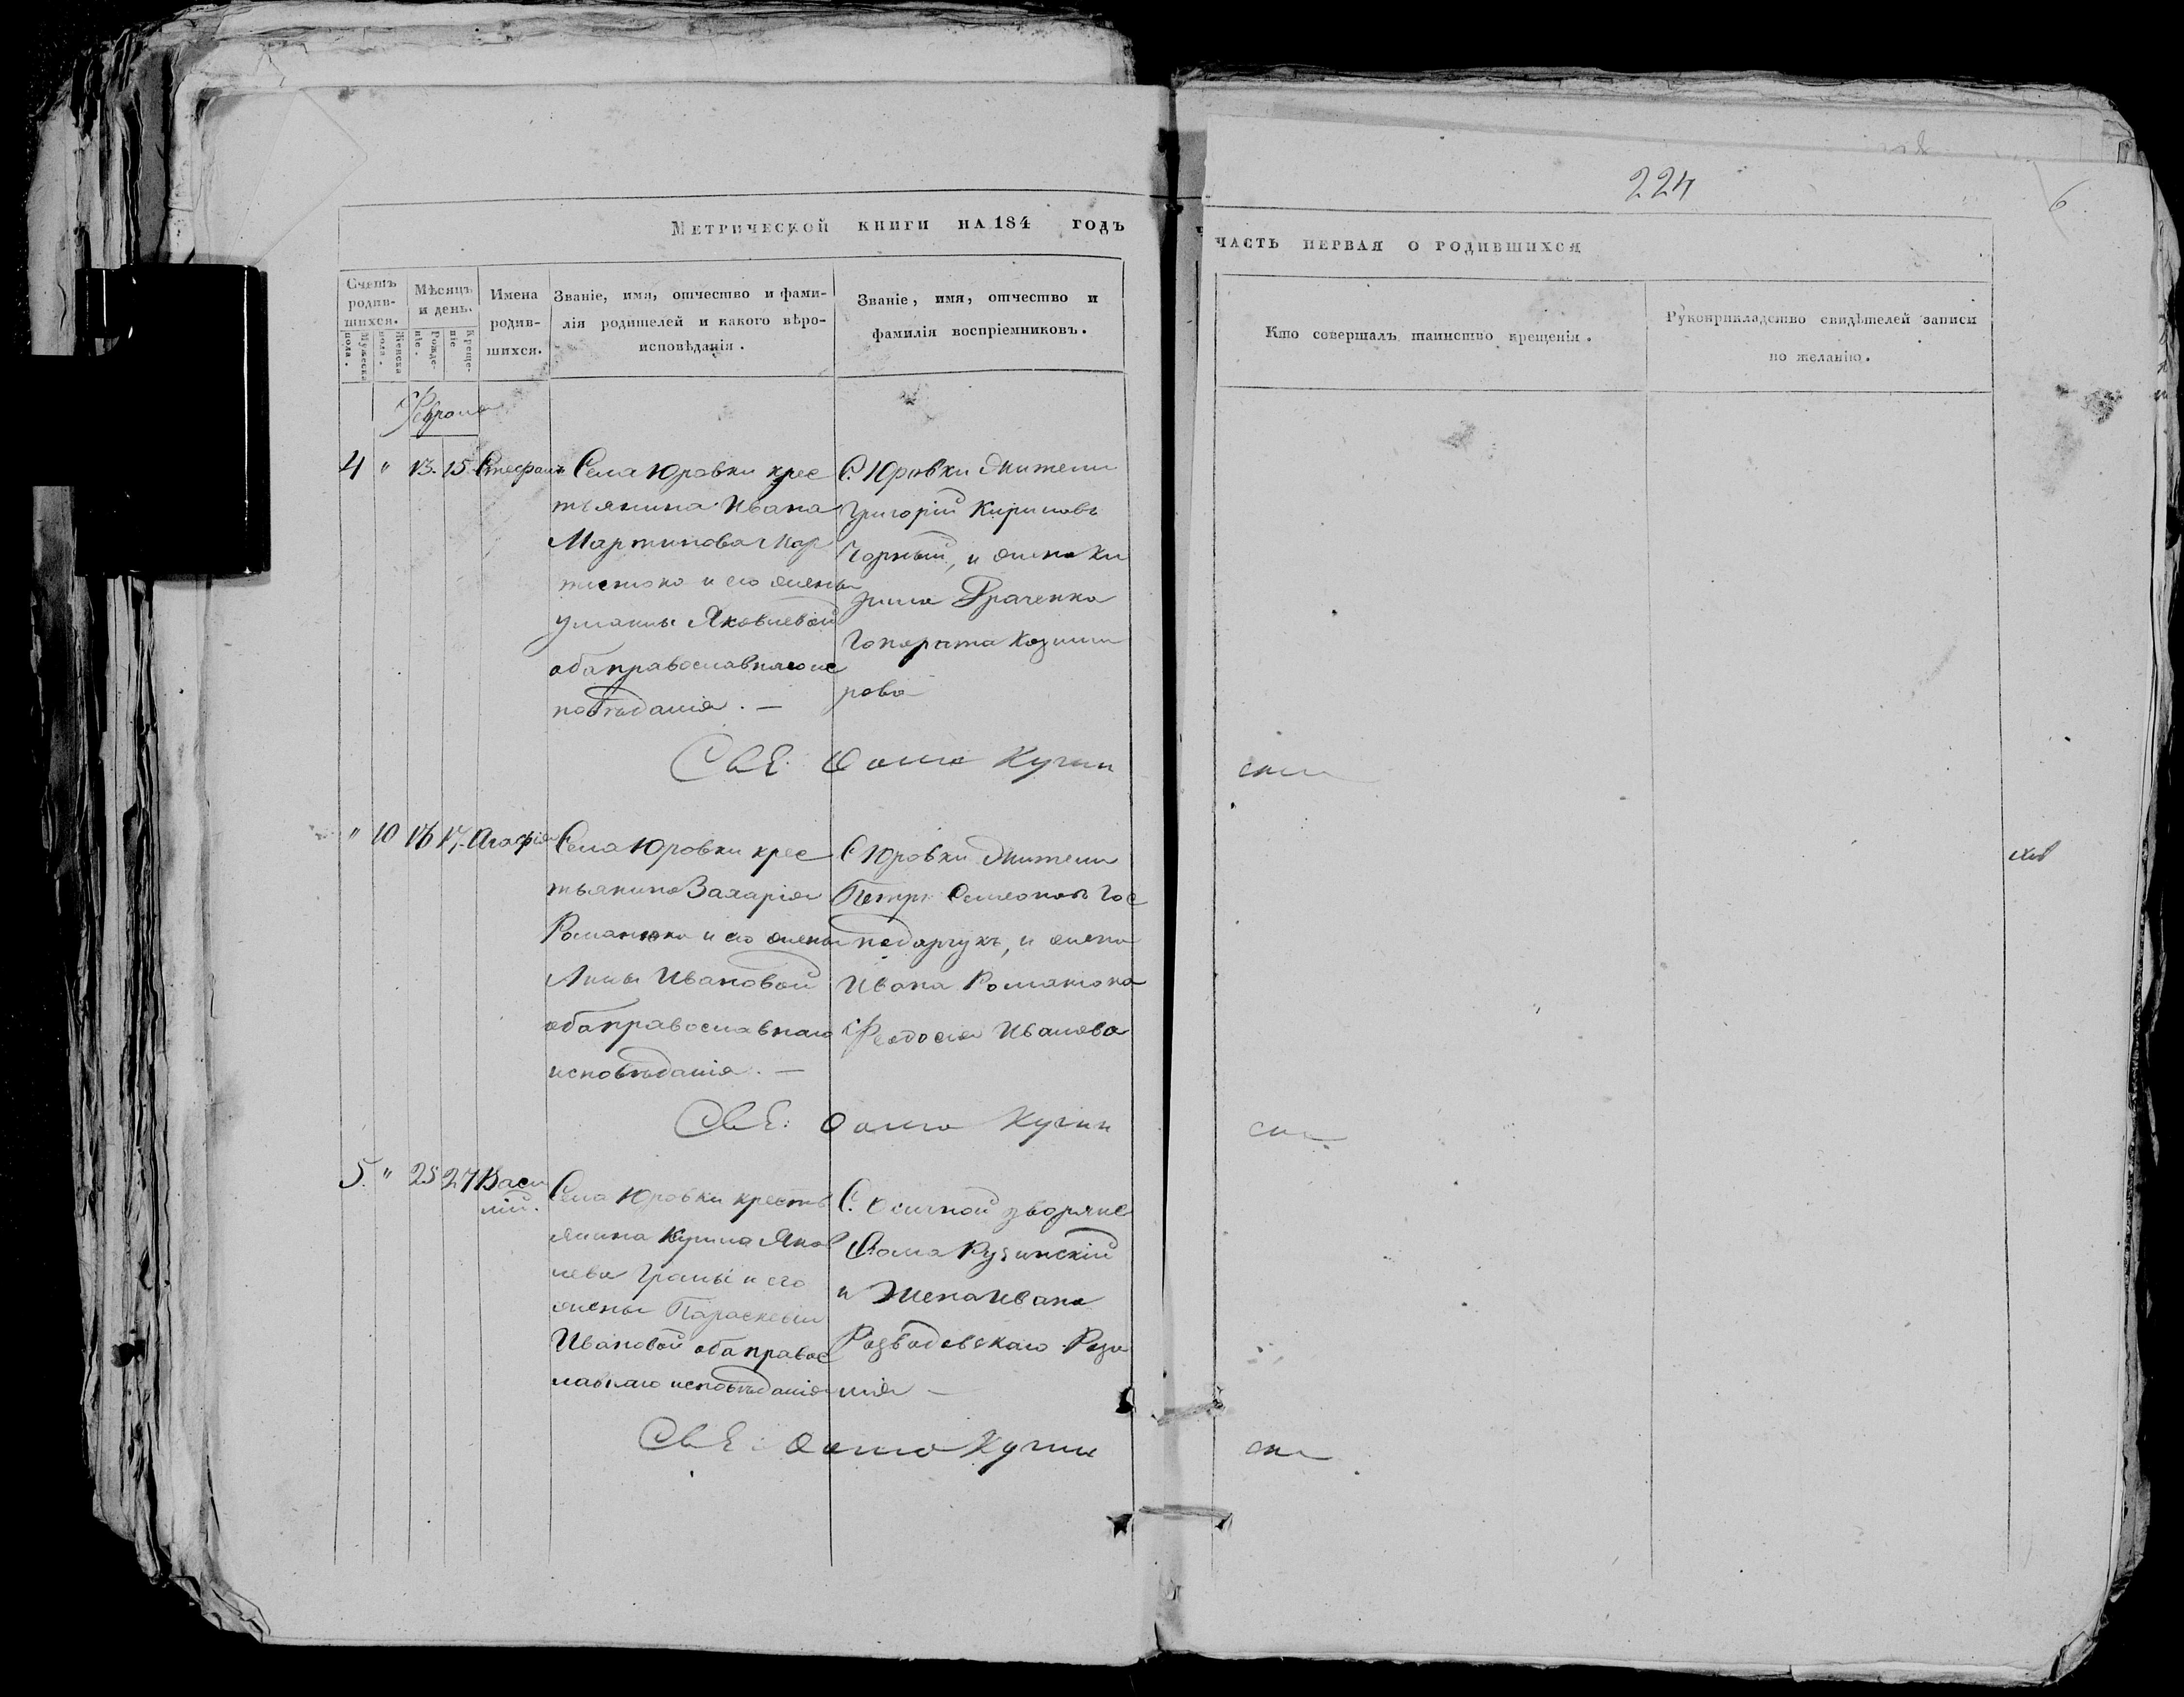 224
6
Метрической книги на 184 годъ
часть первая о родившихся
Счетъ родив-шихся.
Мужеска пола.
Женска пола.
Мѣсяцъ и день.
Рожде-ніе.
Креще-ніе
Имена родив-шихся.
Званіе, имя, отчество и фами-
лія родителей и какого вѣро-
исповѣданія.
Званіе, имя, отчество и
фамилія воспріемниковъ.
Кто совершалъ таинство крещенія.
Рукоприкладство свидѣтелей записи
по желанію.
Февраля
4 " 13. 15. Стефанъ
Села Юровки крес
тьянина Ивана
Мартинова Мар
тинюка и его жены
Улианы Яковлевой
оба православнаго ис
повѣданія. —
С. Юровки жители
Григорій Кириловъ
Чорный, и жена Ки
рила Граченка
рова
Свящ: Фома Кучин
ски
" 10 16 17. Агафія
Села Юровки крес
тьянина Захарія
Романюка и его жены
Анны Ивановой
оба православнаго
исповѣданія. —
С Юровки жители
Петръ Семеновъ Гос
подарчукъ, и жена
Ивана Романюка
Феодосія Иванова
Свящ: Фома Кучин
ски
5. " 25 27 Васи
лій.
Села Юровки кресть
янина Кирила Яков
лева Граны и его
жены Параскевіи
Ивановой оба правос
лавнаго исповѣданія
С. Осичной дворяне
Фома Рузинскій
и Жена Ивана
Розвадовскаго Роза
лія —
Свящ: Фома Кучин
ски